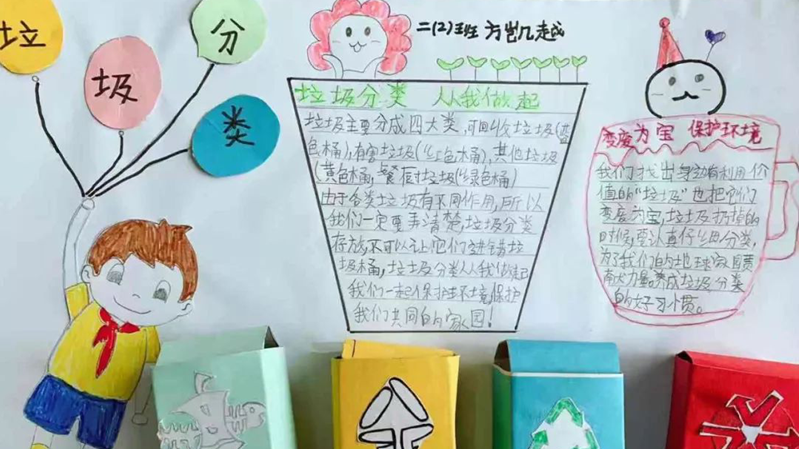 垃
圾
分
类
二(2)班 方凯越
垃圾分类 从我做起
垃圾主要分成四大类,可回收垃圾(蓝
色桶),有害垃圾(红色桶),其他垃圾
(黄色桶,餐厨垃圾(绿色桶)
由于各类垃圾有不同作用,所以
我们一定要弄清楚垃圾分类
存放,不可以让它们进错垃
圾桶,垃圾分类从我做起
我们一起保护环境保护
我们共同的家园!
变废为宝 保护环境
我们才找出身边有利用价
值的“垃圾”也把它们
变废为宝,垃圾扔掉的
时候要认真仔细分类,
为我们的地球家园贡
献力量养成垃圾分类
的好习惯。